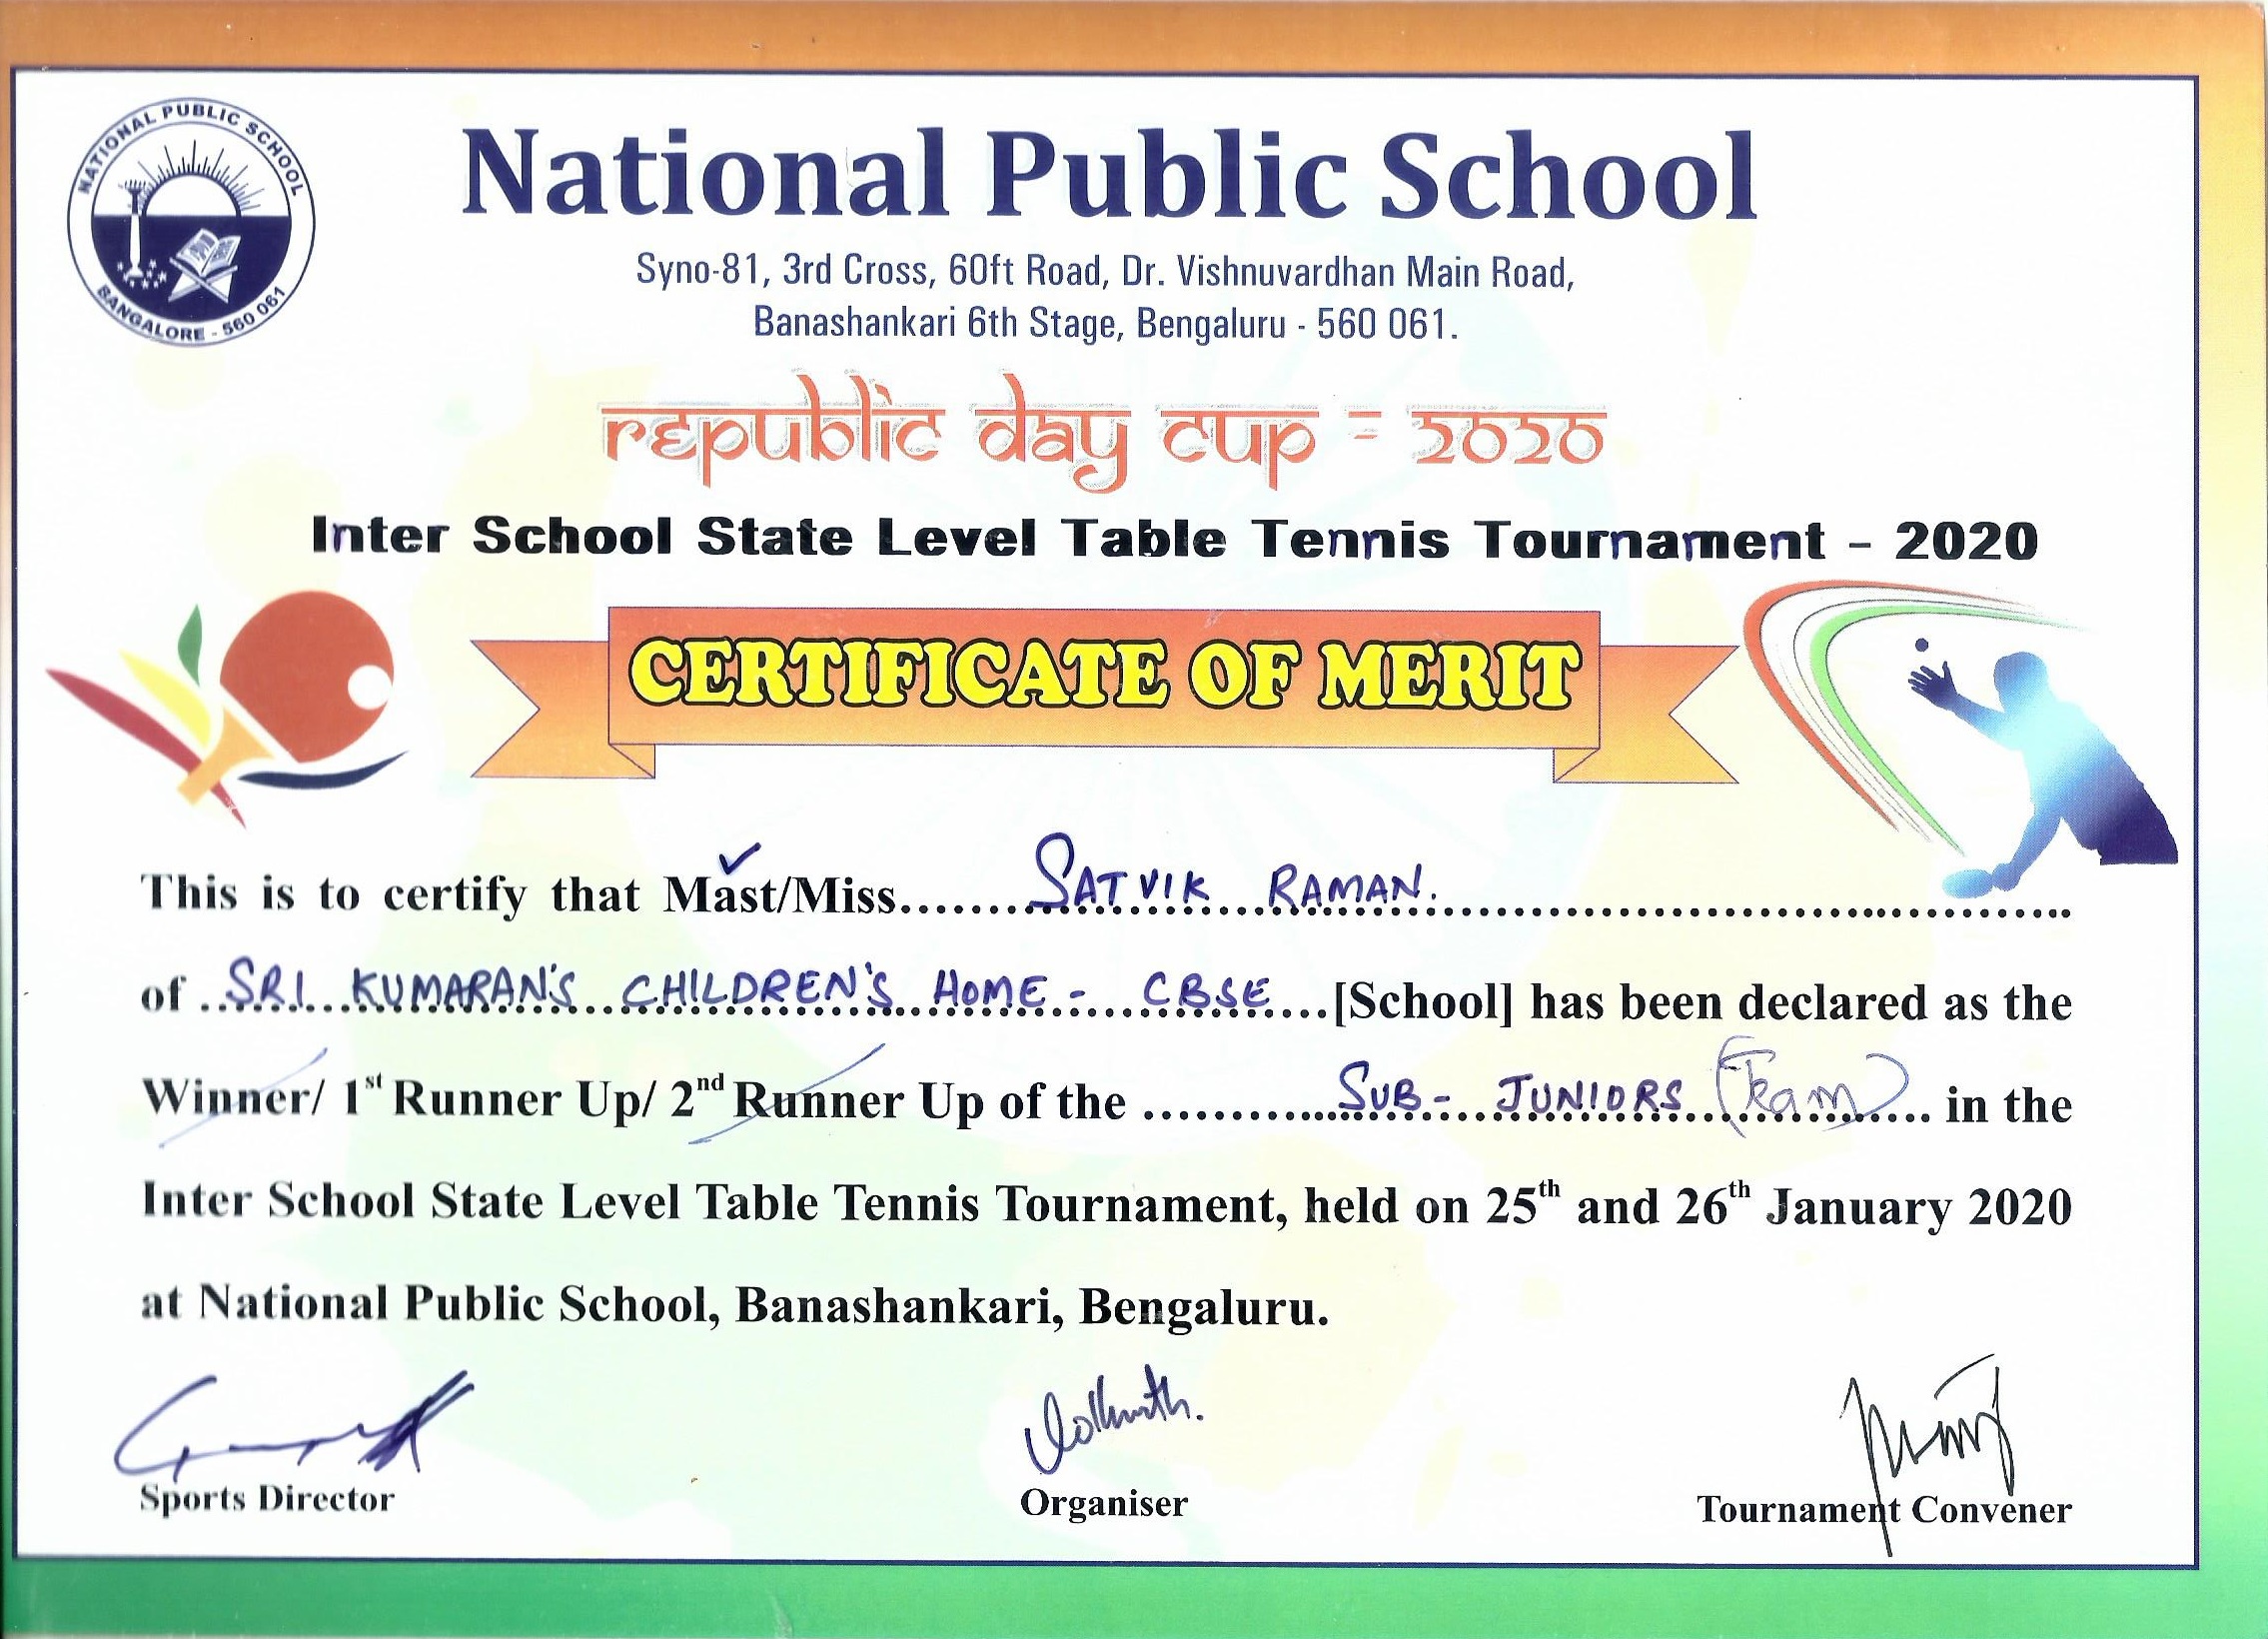 NATIONAL PUBLIC SCHOOL
BANGALORE - 560 061
National Public School
Syno-81, 3rd Cross, 60ft Road, Dr. Vishnuvardhan Main Road,
Banashankari 6th Stage, Bengaluru - 560 061.
republic day cup - 2020
Inter School State Level Table Tennis Tournament - 2020
CERTIFICATE OF MERIT
This is to certify that Mast/Miss SATVIK RAMAN.
of SRI KUMARAN'S CHILDREN'S HOME - CBSE [School] has been declared as the
Winner/ 1st Runner Up/ 2nd Runner Up of the SUB- JUNIORS (Team) in the
Inter School State Level Table Tennis Tournament, held on 25th and 26th January 2020
at National Public School, Banashankari, Bengaluru.
Sports Director
Organiser
Tournament Convener